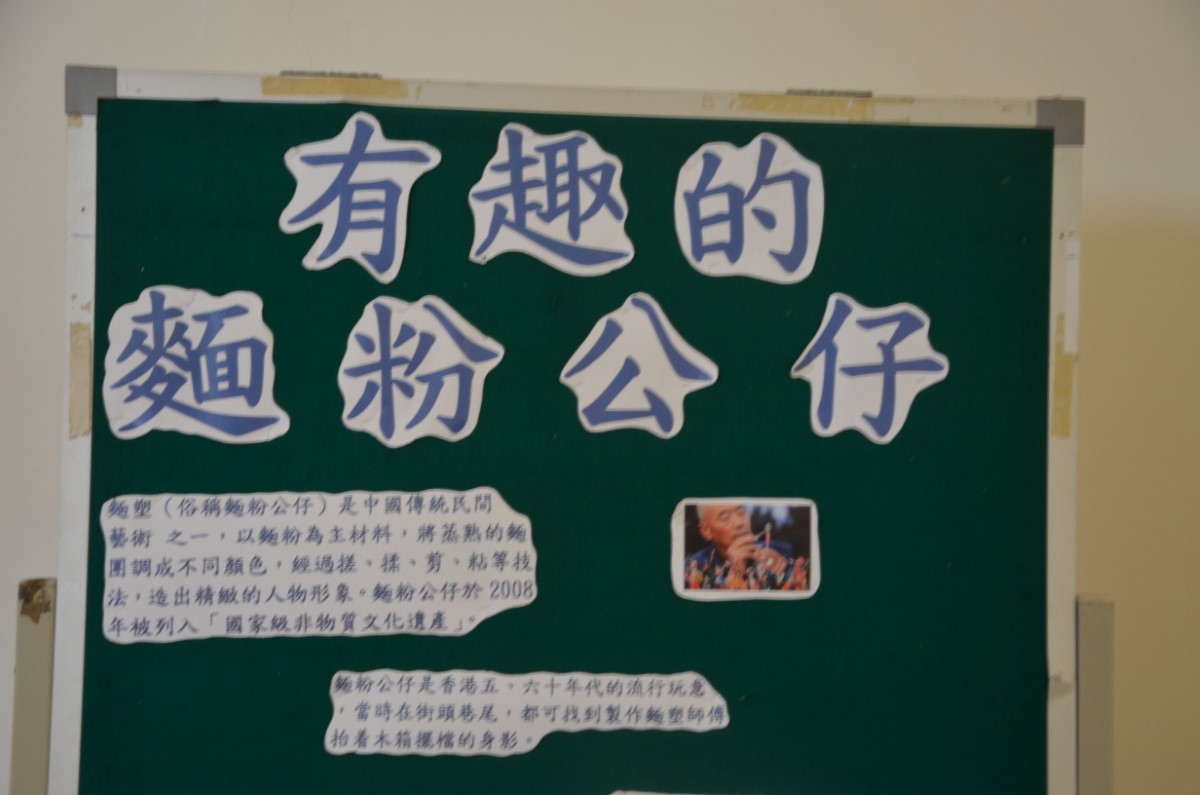 有趣的
麵粉公仔
麵塑（俗稱麵粉公仔）是中國傳統民間
藝術 之一，以麵粉為主材料，將蒸熟的麵
團調成不同顏色，經過搓、揉、剪、粘等技
法，造出精緻的人物形象。麵粉公仔於 2008
年被列入「國家級非物質文化遺產」。
麵粉公仔是香港五、六十年代的流行玩意
，當時在街頭巷尾，都可找到製作麵塑師傅
抬着木箱擺檔的身影。